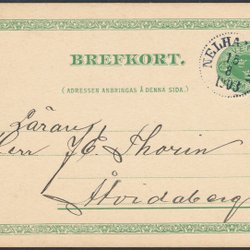 BREFKORT.
(ADRESSEN ANBRINGAS Å DENNA SIDA.)
NELHA
18
8
1903
Lärarn
Herr J. E. Thorin
Åtvidaberg